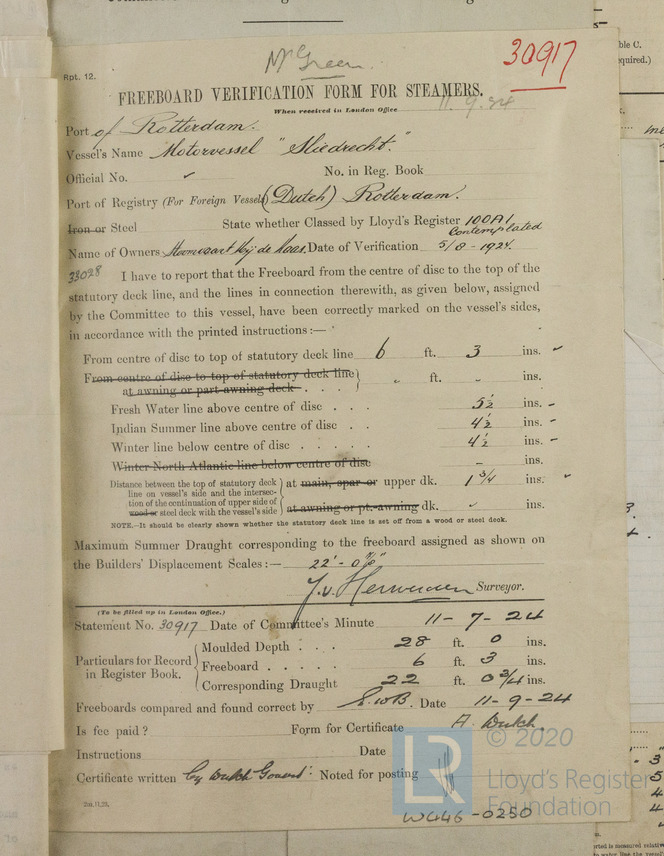 Rpt. 12.
Mr Green.
30917
FREEBOARD VERIFICATION FORM FOR STEAMERS.
When received in London Office 11.9.24
Port of Rotterdam.
Vessel's Name Motorvessel "Sliedrecht."
Official No. ✓ No. in Reg. Book
Port of Registry (For Foreign Vessels) (Dutch) Rotterdam.
Iron or Steel State whether Classed by Lloyd's Register 100A1
Contemplated
Name of Owners de Maas. Date of Verification 5/8-1924.
33028 I have to report that the Freeboard from the centre of disc to the top of the
statutory deck line, and the lines in connection therewith, as given below, assigned
by the Committee to this vessel, have been correctly marked on the vessel's sides,
in accordance with the printed instructions:—
From centre of disc to top of statutory deck line 6 ft. 3 ins.
From centre of disc to top of statutory deck line
at awning or part-awning deck . . . " ft. " ins.
Fresh Water line above centre of disc . . . 5½ ins.
Indian Summer line above centre of disc . . 4½ ins.
Winter line below centre of disc . . . . . 4½ ins.
Winter North Atlantic line below centre of disc – ins.
Distance between the top of statutory deck line on vessel's side and the intersection of the continuation of upper side of wood or steel deck with the vessel's side
at main, spar or upper dk. 1 3/4 ins.
at awning or pt.-awning dk. " ins.
NOTE.—It should be clearly shown whether the statutory deck line is set off from a wood or steel deck.
Maximum Summer Draught corresponding to the freeboard assigned as shown on
the Builders' Displacement Scales:— 22'-0¾"
J. v. Herwerden Surveyor.
(To be filled up in London Office.)
Statement No. 30917 Date of Committee's Minute 11-7-24
Particulars for Record in Register Book.
Moulded Depth . . . 28 ft. 0 ins.
Freeboard . . . . . 6 ft. 3 ins.
Corresponding Draught 22 ft. 0¾ ins.
Freeboards compared and found correct by E.W.B. Date 11-9-24
Is fee paid? Form for Certificate A. Dutch.
Instructions Date
Certificate written by Dutch Govert: Noted for posting
W446-0250
LR
© 2020
Lloyd's Register
Foundation